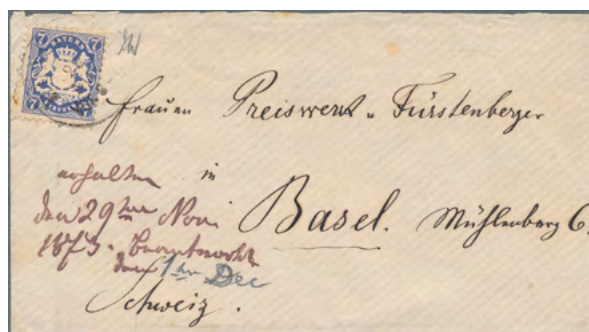 BAYERN
7 7
7 7
Frauen Preiswerk u Fürstenberger
erhalten in
den 29ten Nov Basel. Mühlenberg 6
1873. beantwortet
den 1ten Dec
Schweiz.